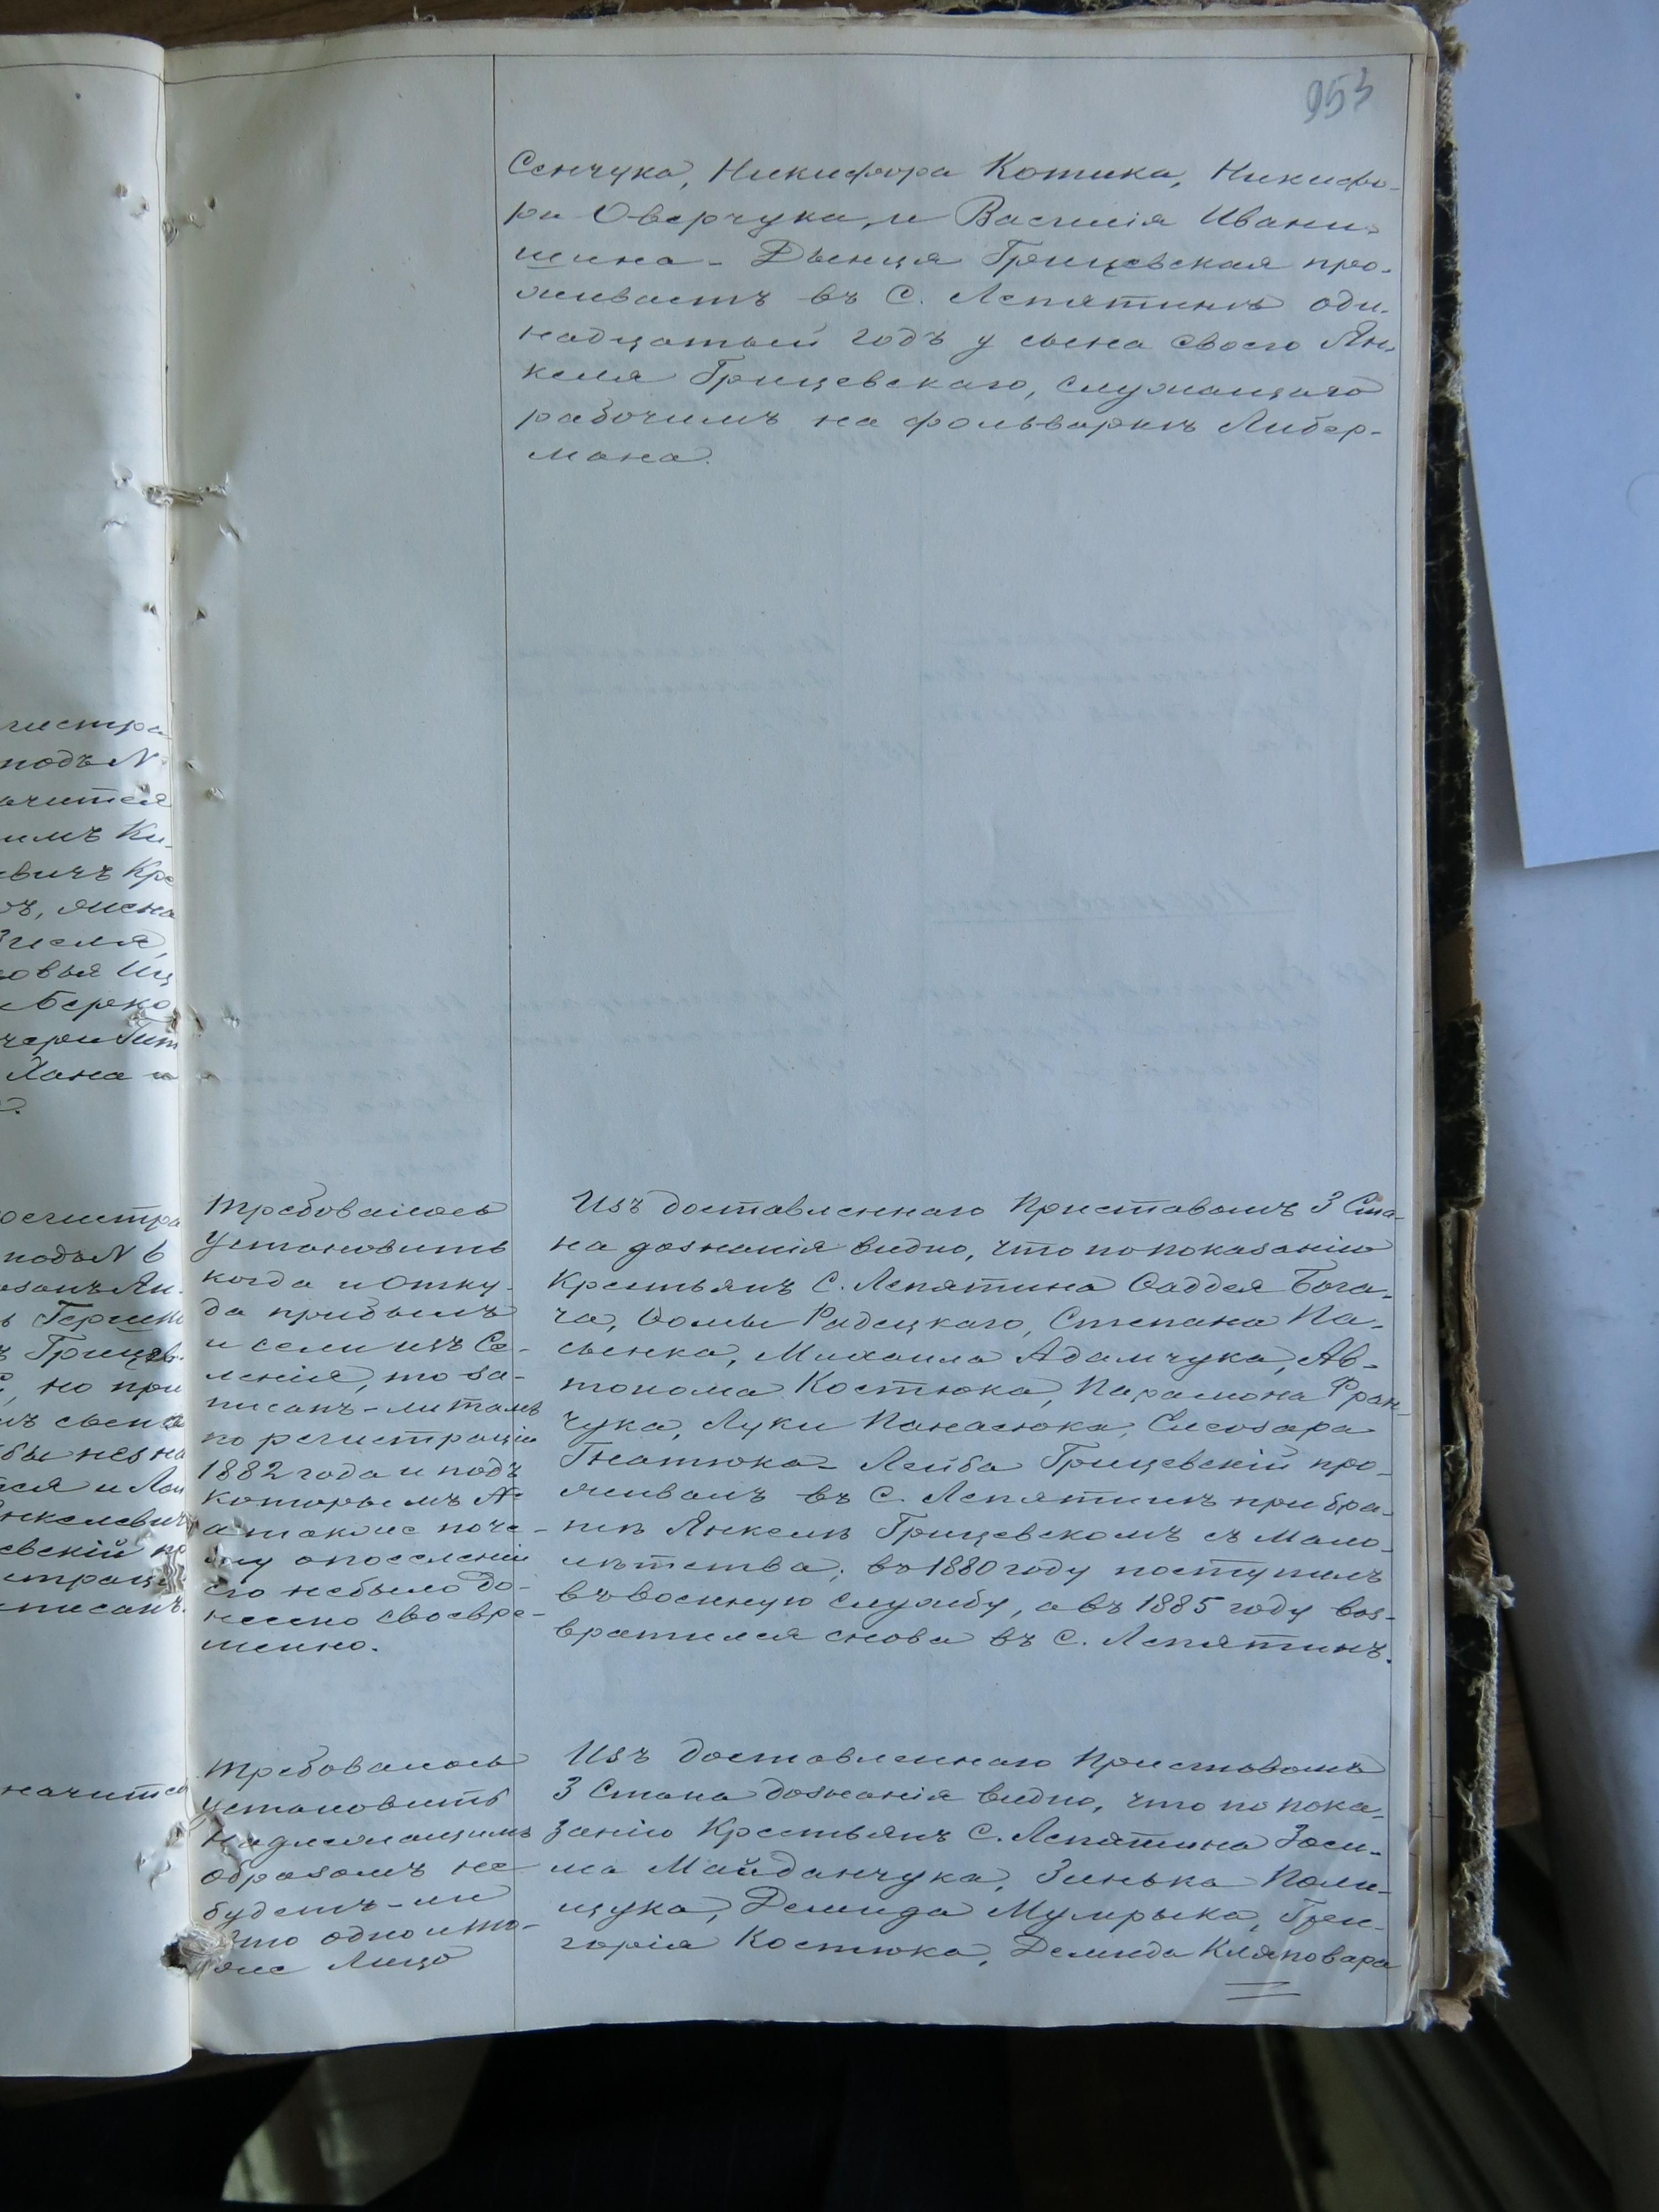 953
Сенчука, Никифора Котика, Никифо-
ра Оверчука, и Василія Ивани-
шина - Двенця Грицевская про-
живаетъ въ С. Лепятинѣ оди-
надцатый годъ у сына своего Ян-
келя Грицевскаго, служащаго
рабочимъ на фольваркѣ Либер-
мана.
гистра
подъ N
ачится
имъ Ки-
евичъ Кре
ъ, жена
Зисля,
овья Иц
Берко
чери Гит
Хана и
Требовалось
установить
когда и отку-
да прибылъ
и если изъ Се-
ленія, то за-
писанъ-ли тамъ
по регистраціи
1882 года и подъ
которымъ №
а также поче-
му о поселеніи
его небыло до-
несено своевре-
менно.
Изъ доставленнаго Приставомъ 3 Ста-
на дознанія видно, что по показанію
Крестьянъ С. Лепятина Ѳаддея Бога-
ча, Ѳомы Радецкаго, Степана Па-
сьенка, Михаила Адамчука, Ав-
тонома Костюка, Парамона Фран-
чука, Луки Панасюка, Елеозара
Гнатюка - Лейба Грицевскій про-
живалъ въ С. Лепятинѣ при бра-
тѣ Янкелѣ Грицевскомъ съ мало-
лѣтства; въ 1880 году поступилъ
въ военную службу, а въ 1885 году воз-
вратился снова въ С. Лепятинъ.
егистра
подъ N 6
Гершк
Грицев-
но при
ся и Лей
нкелевич
евскій по
страц
писанъ.
начится
Требовалось
установить
надлежащимъ
образомъ не
будетъ-ли
это одно и то-
же лицо
Изъ доставленнаго Приставомъ
3 Стана дознанія видно, что по пока-
занію Крестьянъ С. Лепятина Зоси-
ма Майданчука, Зинька Поли-
щука, Демида Мумрыка, Гри-
горія Костюка, Демида Кляповара